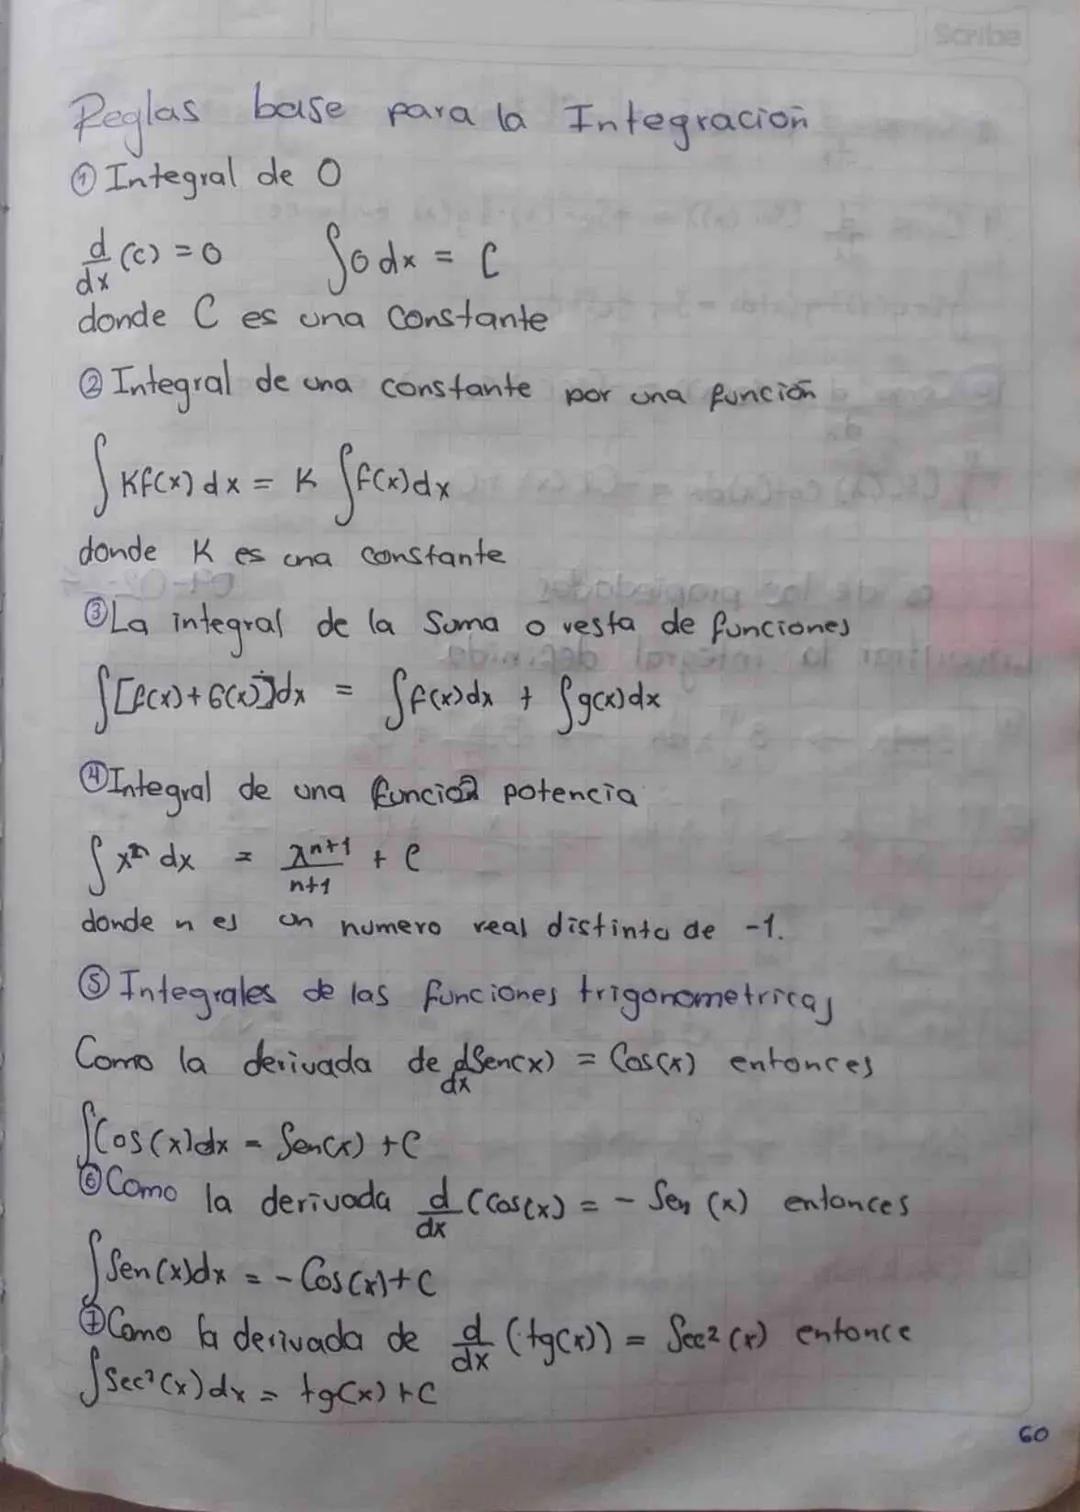 Scribe
Reglas base para la Integración
① Integral de 0
d/dx (c) = 0 ∫0 dx = C
donde C es una constante
② Integral de una constante por una función
∫Kf(x) dx = K ∫f(x)dx
donde K es una constante
③ La integral de la suma o resta de funciones
∫[f(x)+G(x)]dx = ∫f(x)dx + ∫g(x)dx
④ Integral de una función potencia
∫xⁿ dx = xⁿ⁺¹/n+1 + C
donde n es un numero real distinto de -1.
⑤ Integrales de las funciones trigonometricas
Como la derivada de d/dx Sen(x) = Cos(x) entonces
∫Cos(x)dx = Sen(x) + C
⑥ Como la derivada d/dx (Cos(x) = - Sen (x) entonces
∫Sen(x)dx = - Cos(x)+C
⑦ Como la derivada de d/dx (tg(x)) = Sec²(x) entonce
∫Sec²(x)dx = tg(x)+C
60